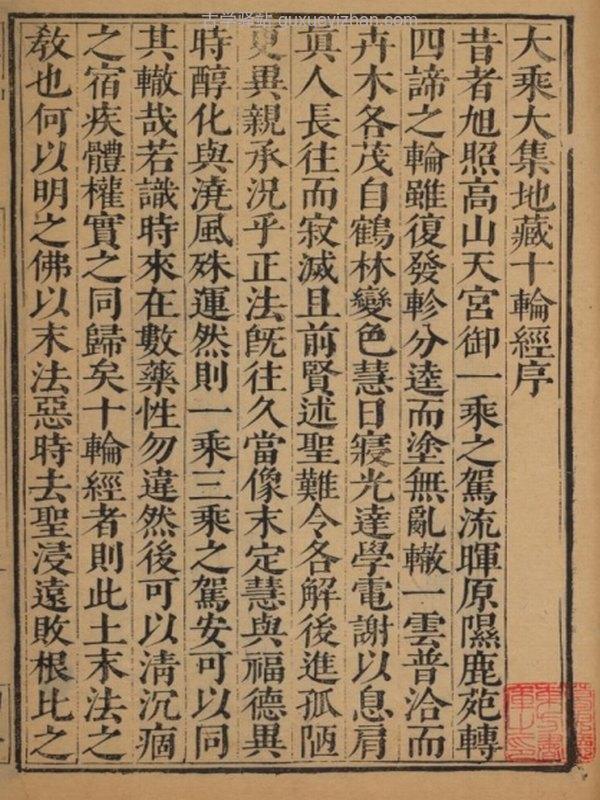 古学驿站 guxueyizhan.com
大乘大集地藏十輪經序
昔者旭照高山天宮御一乘之駕流暉原隰鹿苑轉
四諦之輪雖復發軫分逵而塗無亂轍一雲普洽而
卉木各茂自鶴林變色慧日寢光達學電謝以息肩
真人長往而寂滅且前賢述聖難令各解後進孤陋
更異親承況乎正法旣往久當像末定慧與福德異
時醇化與澆風殊運然則一乘三乘之駕安可以同
其轍哉若識時來在數藥性勿違然後可以清沉痼
之宿疾體權實之同歸矣十輪經者則此土末法之
敎也何以明之佛以末法惡時去聖浸遠敗根比之